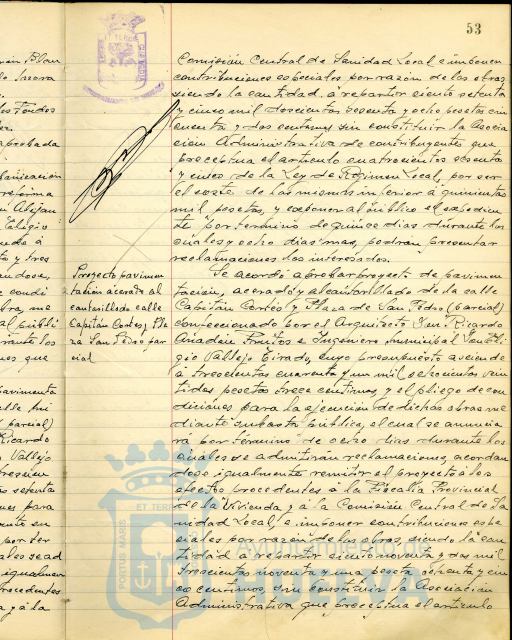 53
Comisión Central de Sanidad Local e imponer
contribuciones especiales por razón de las obras
siendo la cantidad, a repartir ciento setenta
y cinco mil doscientas sesenta y ocho pesetas cin
cuenta y dos centimos sin constituir la Asocia
cion Administrativa de contribuyentes que
preceptua el articulo cuatrocientos sesenta
y cinco de la Ley de Régimen Local, por ser
el coste de las mismas inferior a quinientas
mil pesetas, y exponer al público el expedien
te por término de quince dias durante los
cuales y ocho dias mas, podran presentar
reclamaciones los interesados.
Se acordó aprobar proyecto de pavimen
tación, acerado y alcantarillado de la calle
Capitán Cortés y Plaza de San Pedro (parcial)
confeccionado por el Arquitecto Don Ricardo
Anadon Frutos e Ingeniero municipal Don Eli
gio Vallejo Tirado, cuyo presupuesto asciende
a trescientas cuarenta y un mil setecientas vein
tidos pesetas trece centimos y el pliego de con
diciones para la ejecución de dichas obras me
diante subasta pública, el cual se anuncia
rá por término de ocho dias durante los
cuales se admitirán reclamaciones, acordan
dose igualmente remitir el proyecto a los
efectos procedentes á la Fiscalia Provincial
de la Vivienda y a la Comisión Central de Sa
nidad Local, e imponer contribuciones espe
ciales por razón de las obras, siendo la can
tidad a repartir ciento noventa y dos mil
trescientas noventa y una peseta setenta y cin
co centimos, sin constituir la Asociación
Administrativa que preceptua el articulo
Proyecto pavimen
tación acerado al
cantarillado calle
Capitán Cortes y Pla
za San Pedro par
cial
aprobada
reforma
y tres
pavimenta
parcial)
Ricardo
Vallejo
setenta
para
por ter
igualmen
y a la
PORTUS MARIS
ET TERRAE
HUELVA